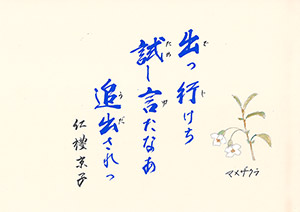 出っ行けち
試し言たなあ
追出されっ
仁禮京子
マメザクラ